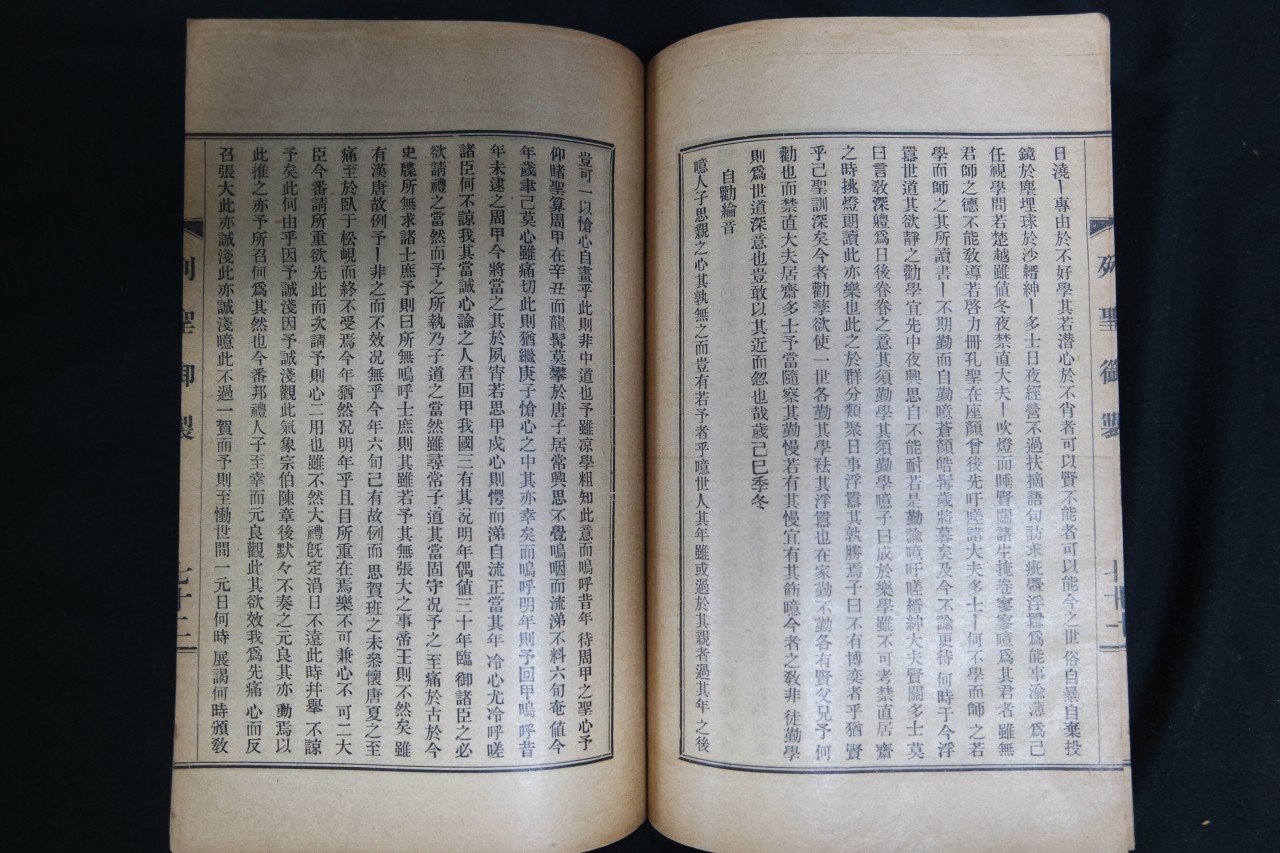 日淺ㅣ專由於不好學其若潛心於不肖者可以賢不能者可以能今之世俗自暴自棄投
鏡於塵埋球於沙縉紳ㅣ多士日夜經營不過扶摘語句訪求疵釁浮囂爲能事渝薄爲己
任視學問若楚越雖値冬夜禁直大夫ㅣ吹燈而睡賢關諸生掩卷寥寥噫爲其君者雖無
君師之德不能敎導若啓力冊孔聖在座顏曾後先吁嗟諸大夫多士ㅣ何不學而師之若
學而師之其所讀書ㅣ不期勤而自勤噫蒼顏皓髯歲將暮矣及今不諭更待何時于今浮
囂世道其欲靜之勸學宜先中夜興思自不能耐若是勤諭噫吁嗟縉紳大夫賢關多士莫
曰言敎深軆爲日後眷眷之意其須勤學其須勤學噫子曰成於樂學雖不可考禁直居齋
之時挑燈朗讀此亦樂也此之於群分類聚日事浮囂其孰勝焉子曰不有博奕者乎猶賢
乎己聖訓深矣今者勸孶欲使一世各勤其學祛其浮囂也在家勤不勤各有賢父兄予何
勸也而禁直大夫居齋多士予當隨察其勤慢若有其慢宜有其飭噫今者之敎非徒勤學
則爲世道深意也豈敢以其近而忽也哉歲己巳季冬
自勸綸音
噫人子思親之心其孰無之而豈有若予者乎噫世人其年雖或過於其親者過其年之後
列聖御製
七十二
豈可一以愴心自畫乎此則非中道也予雖凉學粗知此意而嗚呼昔年待周甲之聖心予
仰睹聖算周甲在辛丑而龍髯莫攀於唐子居常興思不覺嗚咽而流涕不料六旬奄値今
年歲聿己莫心雖痛切此則猶繼庚子愴心之中其亦幸矣而嗚呼明年則予回甲嗚呼昔
年未逮之周甲今將當之其於夙宵若思甲戌心則愕而涕自流正當其年冷心尤冷呼嗟
諸臣何不諒我其當誠心諭之人君回甲我國三有其况明年偶値三十年臨御諸臣之必
欲請禮之當然而予之所執乃子道之當然雖尋常子道其當固守况予之至痛於古於今
史牒所無求諸士庶予則曰所無嗚呼士庶則其雖若予其無張大之事帝王則不然矣雖
有漢唐故例予ㅣ非之而不效况無乎今年六旬己有故例而思賀班之未參懷唐夏之至
痛至於臥于松峴而終不受焉今年猶然况明年乎且目所重在焉樂不可兼心不可二大
臣今番請所重欲先此而次請予則心二用也雖不然大禮旣定涓日不遠此時幷擧不諒
予矣此何由乎因予誠淺因予誠淺觀此氣象宗伯陳章後默々不奏之元良其亦動焉以
此推之亦予所召何爲其然也今番邦禮人子至幸而元良觀此其欲效我爲先痛心而反
召張大此亦誠淺此亦誠淺噫此不過一賀而予則至慟世間一元日何時展謁何時頒敎
列聖御製
七十三